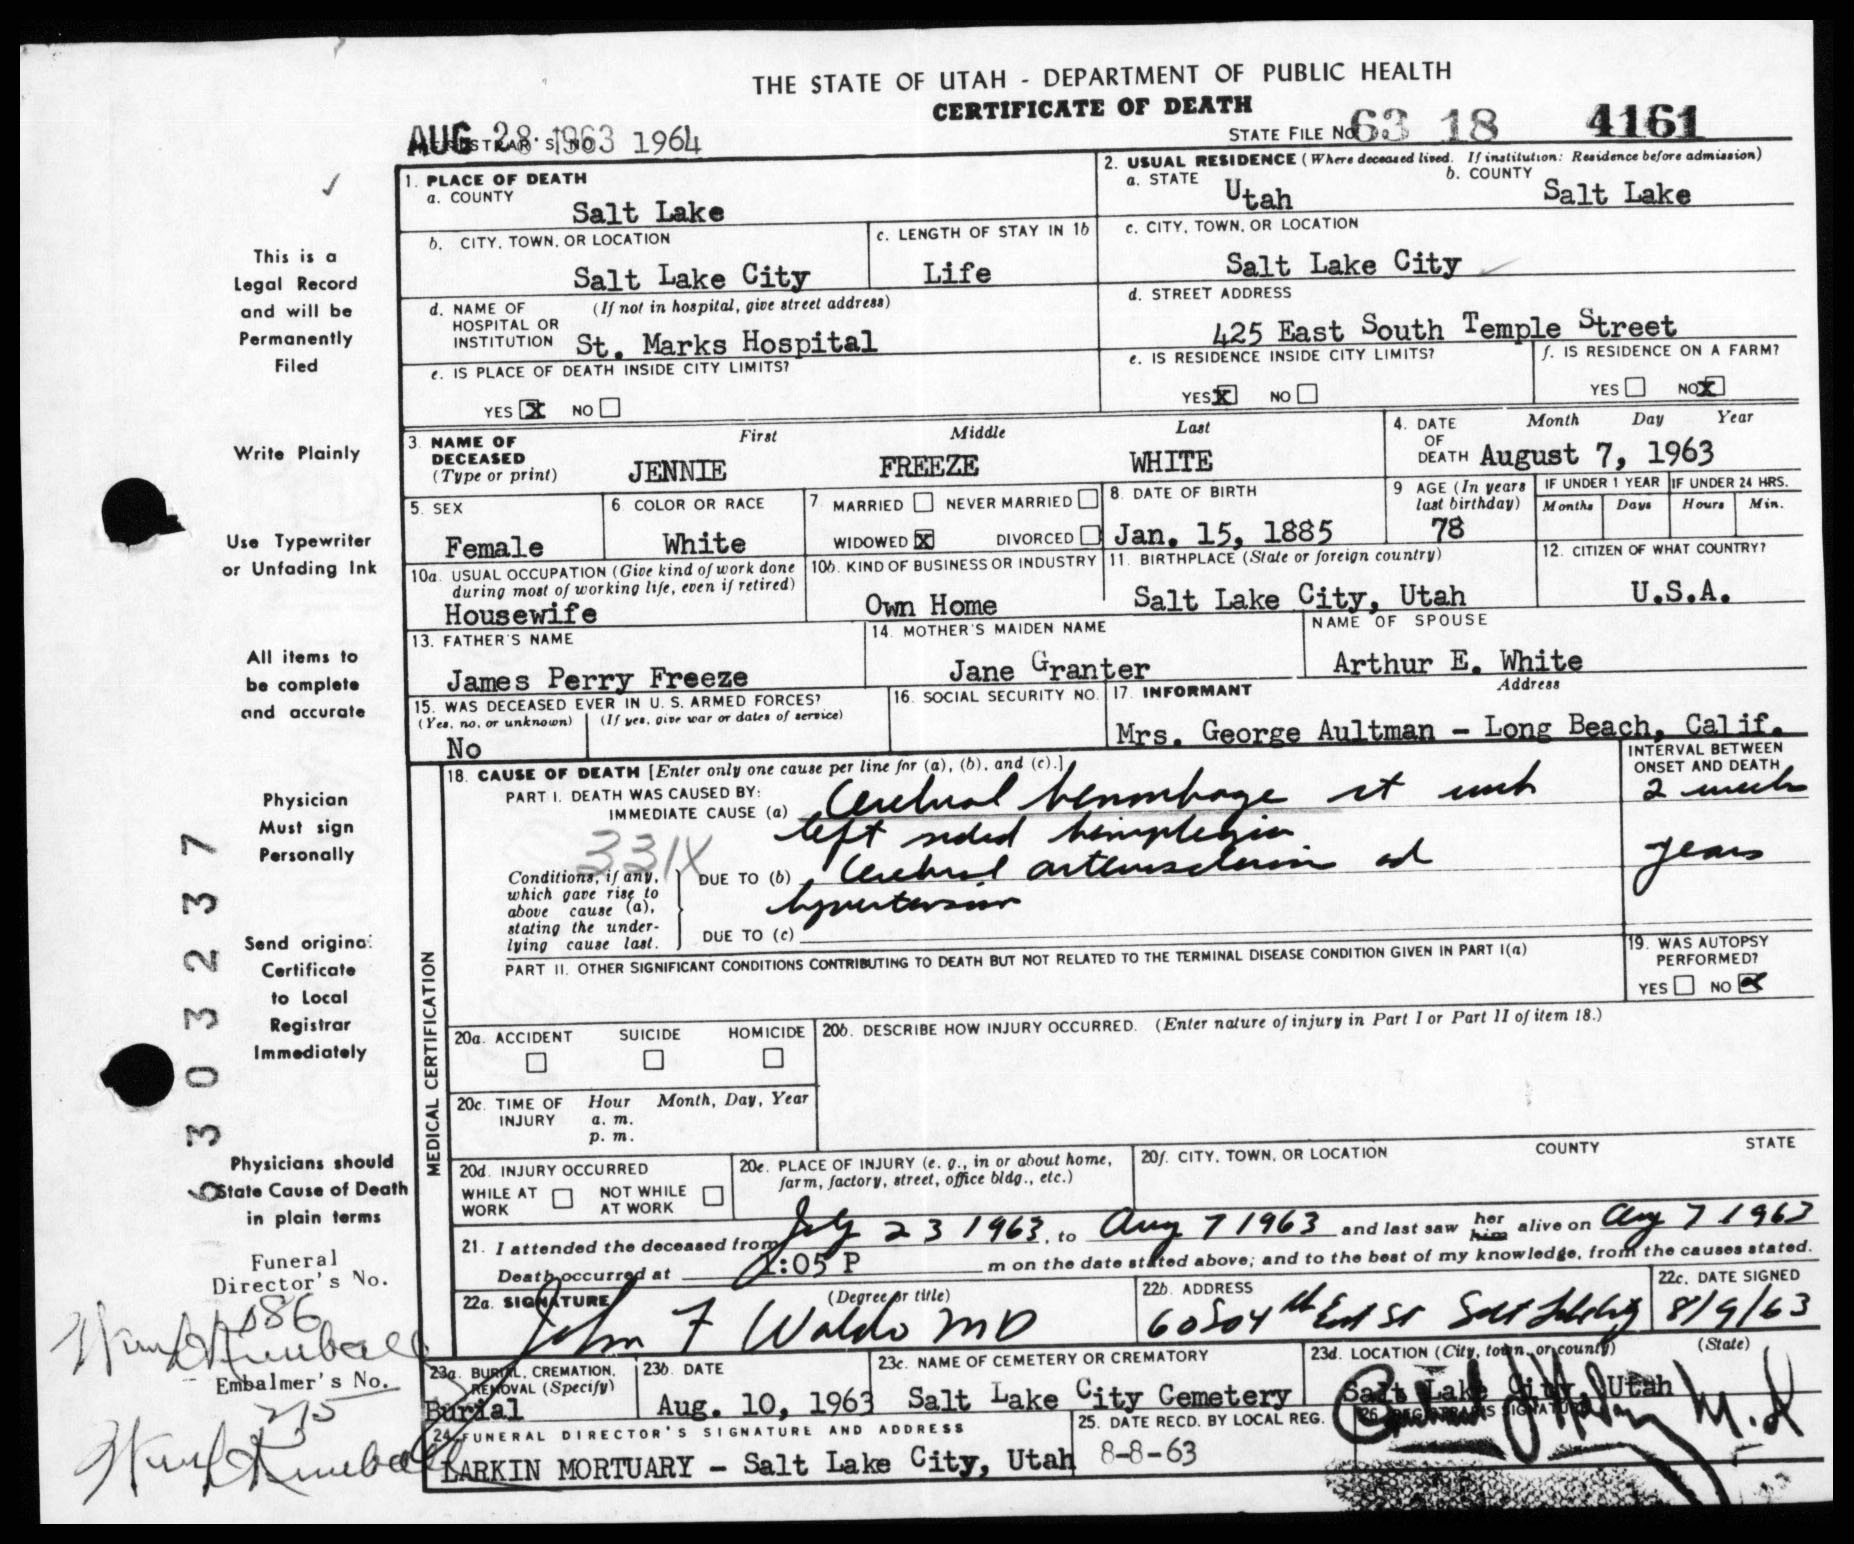 THE STATE OF UTAH - DEPARTMENT OF PUBLIC HEALTH
CERTIFICATE OF DEATH
AUG 28 1963 1964
REGISTRAR'S NO.
STATE FILE NO. 63 18 4161
1. PLACE OF DEATH
a. COUNTY
Salt Lake
2. USUAL RESIDENCE (Where deceased lived. If institution: Residence before admission)
a. STATE Utah
b. COUNTY Salt Lake
b. CITY, TOWN, OR LOCATION
Salt Lake City
c. LENGTH OF STAY IN 1b
Life
c. CITY, TOWN, OR LOCATION
Salt Lake City
d. NAME OF HOSPITAL OR INSTITUTION (If not in hospital, give street address)
St. Marks Hospital
d. STREET ADDRESS
425 East South Temple Street
e. IS PLACE OF DEATH INSIDE CITY LIMITS?
YES X NO
e. IS RESIDENCE INSIDE CITY LIMITS?
YES X NO
f. IS RESIDENCE ON A FARM?
YES NO X
3. NAME OF DECEASED (Type or print)
First Middle Last
JENNIE FREEZE WHITE
4. DATE OF DEATH Month Day Year
August 7, 1963
5. SEX
Female
6. COLOR OR RACE
White
7. MARRIED NEVER MARRIED
WIDOWED X DIVORCED
8. DATE OF BIRTH
Jan. 15, 1885
9 AGE (In years last birthday)
78
IF UNDER 1 YEAR
Months Days
IF UNDER 24 HRS.
Hours Min.
10a. USUAL OCCUPATION (Give kind of work done during most of working life, even if retired)
Housewife
10b. KIND OF BUSINESS OR INDUSTRY
Own Home
11. BIRTHPLACE (State or foreign country)
Salt Lake City, Utah
12. CITIZEN OF WHAT COUNTRY?
U.S.A.
13. FATHER'S NAME
James Perry Freeze
14. MOTHER'S MAIDEN NAME
Jane Granter
NAME OF SPOUSE
Arthur E. White
15. WAS DECEASED EVER IN U. S. ARMED FORCES?
(Yes, no, or unknown) (If yes, give war or dates of service)
No
16. SOCIAL SECURITY NO.
17. INFORMANT Address
Mrs. George Aultman - Long Beach, Calif.
MEDICAL CERTIFICATION
18. CAUSE OF DEATH [Enter only one cause per line for (a), (b), and (c).]
INTERVAL BETWEEN ONSET AND DEATH
PART I. DEATH WAS CAUSED BY:
IMMEDIATE CAUSE (a) Cerebral hemorrhage
2 weeks
left sided hemiplegia
331X
Conditions, if any, which gave rise to above cause (a), stating the underlying cause last.
DUE TO (b) Cerebral arteriosclerosis ad
hypertension
years
DUE TO (c)
PART II. OTHER SIGNIFICANT CONDITIONS CONTRIBUTING TO DEATH BUT NOT RELATED TO THE TERMINAL DISEASE CONDITION GIVEN IN PART I(a)
19. WAS AUTOPSY PERFORMED?
YES NO X
20a. ACCIDENT SUICIDE HOMICIDE
20b. DESCRIBE HOW INJURY OCCURRED. (Enter nature of injury in Part I or Part II of item 18.)
20c. TIME OF INJURY Hour Month, Day, Year
a. m.
p. m.
20d. INJURY OCCURRED
WHILE AT WORK NOT WHILE AT WORK
20e. PLACE OF INJURY (e. g., in or about home, farm, factory, street, office bldg., etc.)
20f. CITY, TOWN, OR LOCATION COUNTY STATE
21. I attended the deceased from July 23 1963, to Aug 7 1963 and last saw her him alive on Aug 7 1963
Death occurred at 1:05 P m on the date stated above; and to the best of my knowledge, from the causes stated.
22a. SIGNATURE (Degree or title)
John F Waldo MD
22b. ADDRESS
22c. DATE SIGNED
8/9/63
23a. BURIAL, CREMATION, REMOVAL (Specify)
Burial
23b. DATE
Aug. 10, 1963
23c. NAME OF CEMETERY OR CREMATORY
Salt Lake City Cemetery
23d. LOCATION (City, town, or county) (State)
Salt Lake City, Utah
24. FUNERAL DIRECTOR'S SIGNATURE AND ADDRESS
LARKIN MORTUARY - Salt Lake City, Utah
25. DATE RECD. BY LOCAL REG.
8-8-63
26. REGISTRAR'S SIGNATURE
This is a
Legal Record
and will be
Permanently
Filed
Write Plainly
Use Typewriter
or Unfading Ink
All items to
be complete
and accurate
Physician
Must sign
Personally
Send original
Certificate
to Local
Registrar
Immediately
Physicians should
State Cause of Death
in plain terms
6303237
Funeral
Director's No.
Embalmer's No.